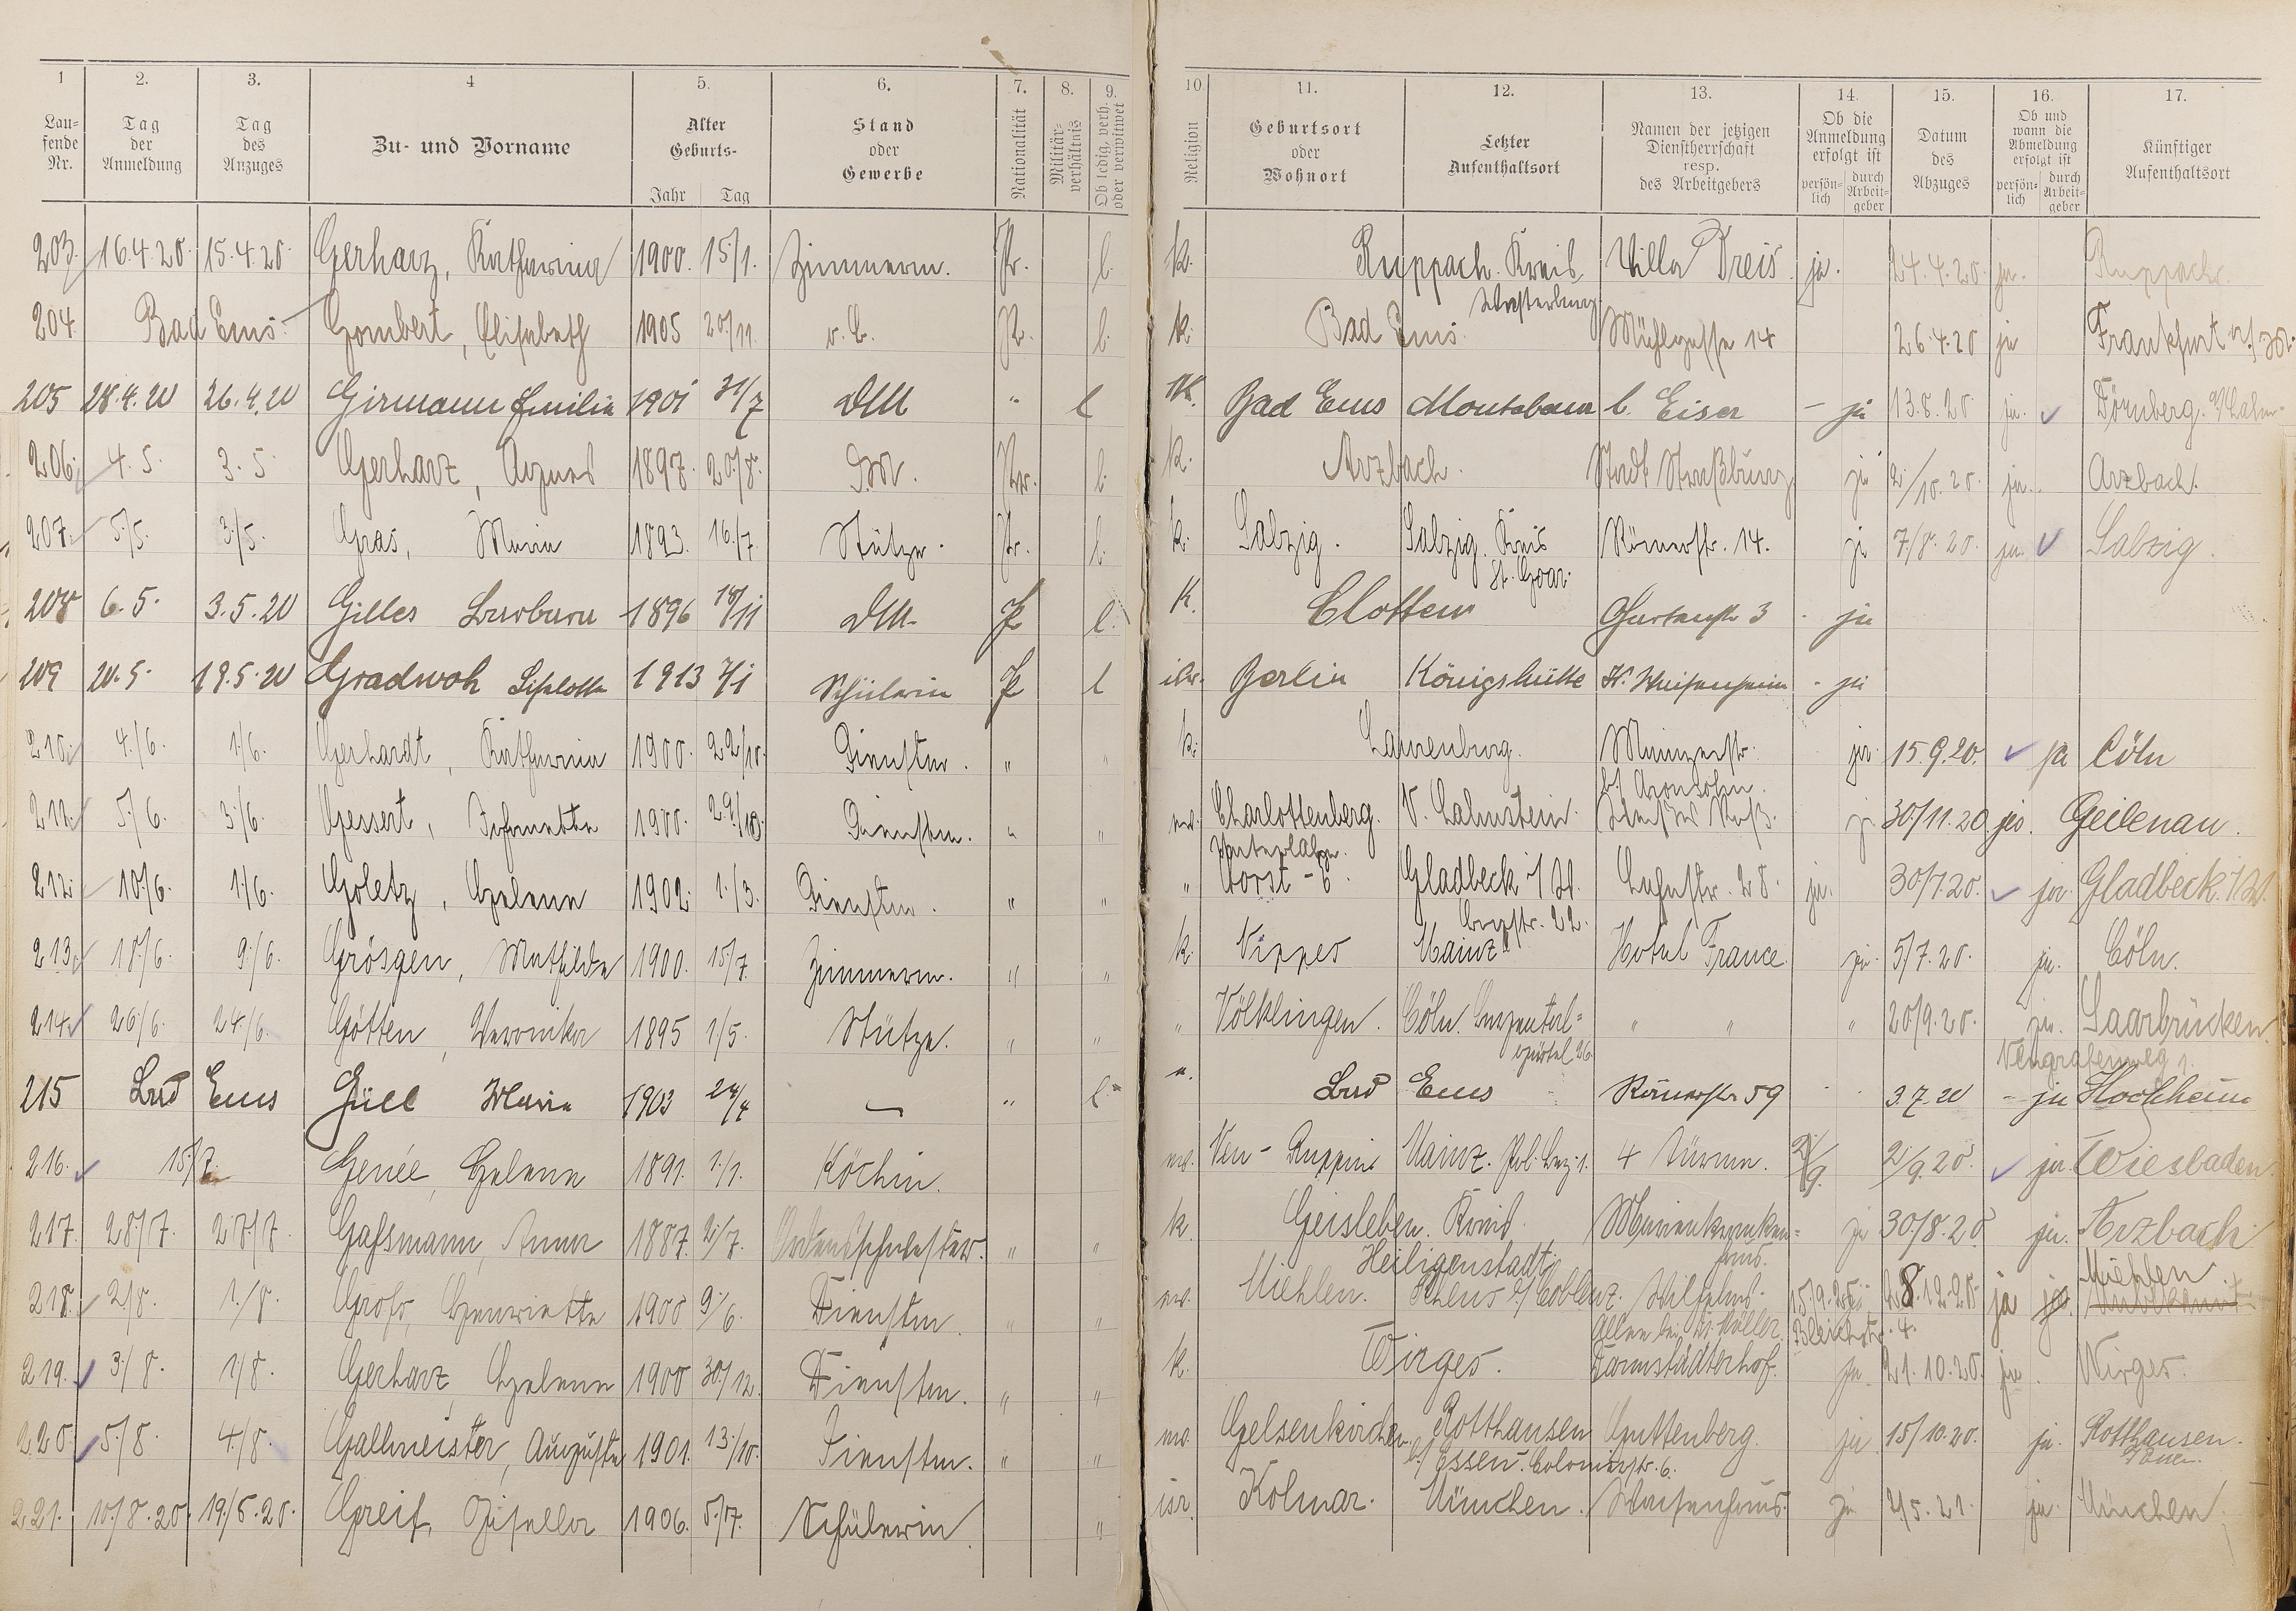 1 2. 3. 4 5. 6. 7. 8. 9. 10. 11. 12. 13. 14. 15. 16. 17.
Lau=
fende
Nr.
Tag
der
Anmeldung
Tag
des
Anzuges
Zu- und Vorname
Alter
Geburts-
Jahr Tag
Stand
oder
Gewerbe
Nationalität
Militär-
verhältnis
Ob ledig, verh.
oder verwitwet
Religion
Geburtsort
oder
Wohnort
Letzter
Aufenthaltsort
Namen der jetzigen
Dienstherrschaft
resp.
des Arbeitgebers
Ob die
Anmeldung
erfolgt ist
persön-
lich
durch
Arbeit-
geber
Datum
des
Abzuges
Ob und
wann die
Abmeldung
erfolgt ist
persön-
lich
durch
Arbeit-
geber
Künftiger
Aufenthaltsort
203. 16.4.20. 15.4.20. Gerharz, Katharina 1900. 15/1. Zimmerm. Pr. l. k. Ruppach. Kreis Villa Dreis ja. 24.4.20 ja. Ruppach.
Westerburg
204. Bad Ems. Gombert, Elisabeth 1905 20/11. o. B. Pr. l. k. Bad Ems. Mühlgasse 14 26.4.20 ja Frankfurt a/M.
205 28.4.20 26.4.20 Girmann Emilie 1901 31/7 DM " l K. Bad Ems Montabaur b. Eiser - ja 13.8.20 ja. Dörnberg. a/Lahn
206. 4.5. 3.5 Gerharz, Agnes 1897. 20/8. D.M. Pr. l. k. Arzbach. Stadt Straßburg ja 2/10.20. ja. Arzbach.
207. 5/5. 3/5. Gras, Maria 1893. 16/7. Stütze. Pr. l. k. Salzig. Salzig. Kreis Römerstr. 14. ja 7/8.20. ja. Salzig.
St. Goar.
208 6.5. 3.5.20 Gilles Barbara 1896 18/11 DM. Pr l. K. Clotten Gartenstr 3 - ja
209 20.5. 19.5.20 Gradwoh Liselotte 1913 7/1 Schülerin Pr l isr. Berlin Königshütte - ja
210. 4./6. 1/6. Gerhardt, Katharina 1900. 22/10. Dienstm. " " k. Laurenburg. Mainzerstr. ja. 15.9.20. ja Cöln
b/ Aronsohn.
211. 5./6. 3/6. Gessert, Johanette 1900. 29/10. Dienstm. " " ev. Charlottenberg. N. Lahnstein. ja 30/11.20 ja. Geilenau.
Unterlahn.
212. 10/6. 1/6. Goletz, Helene 1902. 1./3. Dienstm. " " " Horst-E. Gladbeck i/W. Lahnstr. 28. ja. 30/7.20. ja. Gladbeck i/W.
Bergstr. 22.
213. 10/6. 9./6. Grösgen, Mathilde 1900. 15/7. Zimmerm. " " k. Nippes Mainz Hotel France ja. 5/7.20. ja. Cöln.
214. 26/6. 24./6. Götten, Veronika 1895 1/5. Stütze. " " " Völklingen. Cöln. " " " 20/9.20. ja. Saarbrücken
gürtel 26
215 Bad Ems Güll Maria 1903 24/4 — " l " Bad Ems Römerstr 59 3.7.20 - ja Hochheim
216. 15/7. Genée, Helene 1891. 1./1. Köchin. ev. Neu-Ruppin Mainz. Pol. Bez. 1. 4 Türme. 2/9. 2/9.20. ja. Wiesbaden.
217. 28/7. 27/7. Gassmann, Anna 1887. 2/7. Ordensschwester. " " k. Geisleben. Kreis Marienkranken= ja 30/8.20 ja. Arzbach
Heiligenstadt haus.
218. 2/8. 1./8. Gross, Henriette 1900 9/6. Dienstm. " " ev. Miehlen. Rhens b/Coblenz. Wilhelms- 15/9.20 28.12.20. ja ja. Miehlen
Allee bei Müller. Bleichstr. 4.
219. 3/8. 1/8. Gerharz Helene 1900 30/12. Dienstm. " " k. Wirges. Darmstädterhof. ja 21.10.20. ja. Wirges.
220. 5/8. 4/8. Gallmeister, Auguste 1901. 13./10. Dienstm. " " ev. Gelsenkirchen. Rotthausen Guttenberg. ja 15/10.20. ja. Rotthausen.
b/Essen. Coloniestr. 6. Essen.
221. 10/8.20. 19/5.20. Greif, Gisella 1906. 5/7. Schülerin " isr. Kolmar. München. Waisenhaus. ja 2/5.21. ja. München.